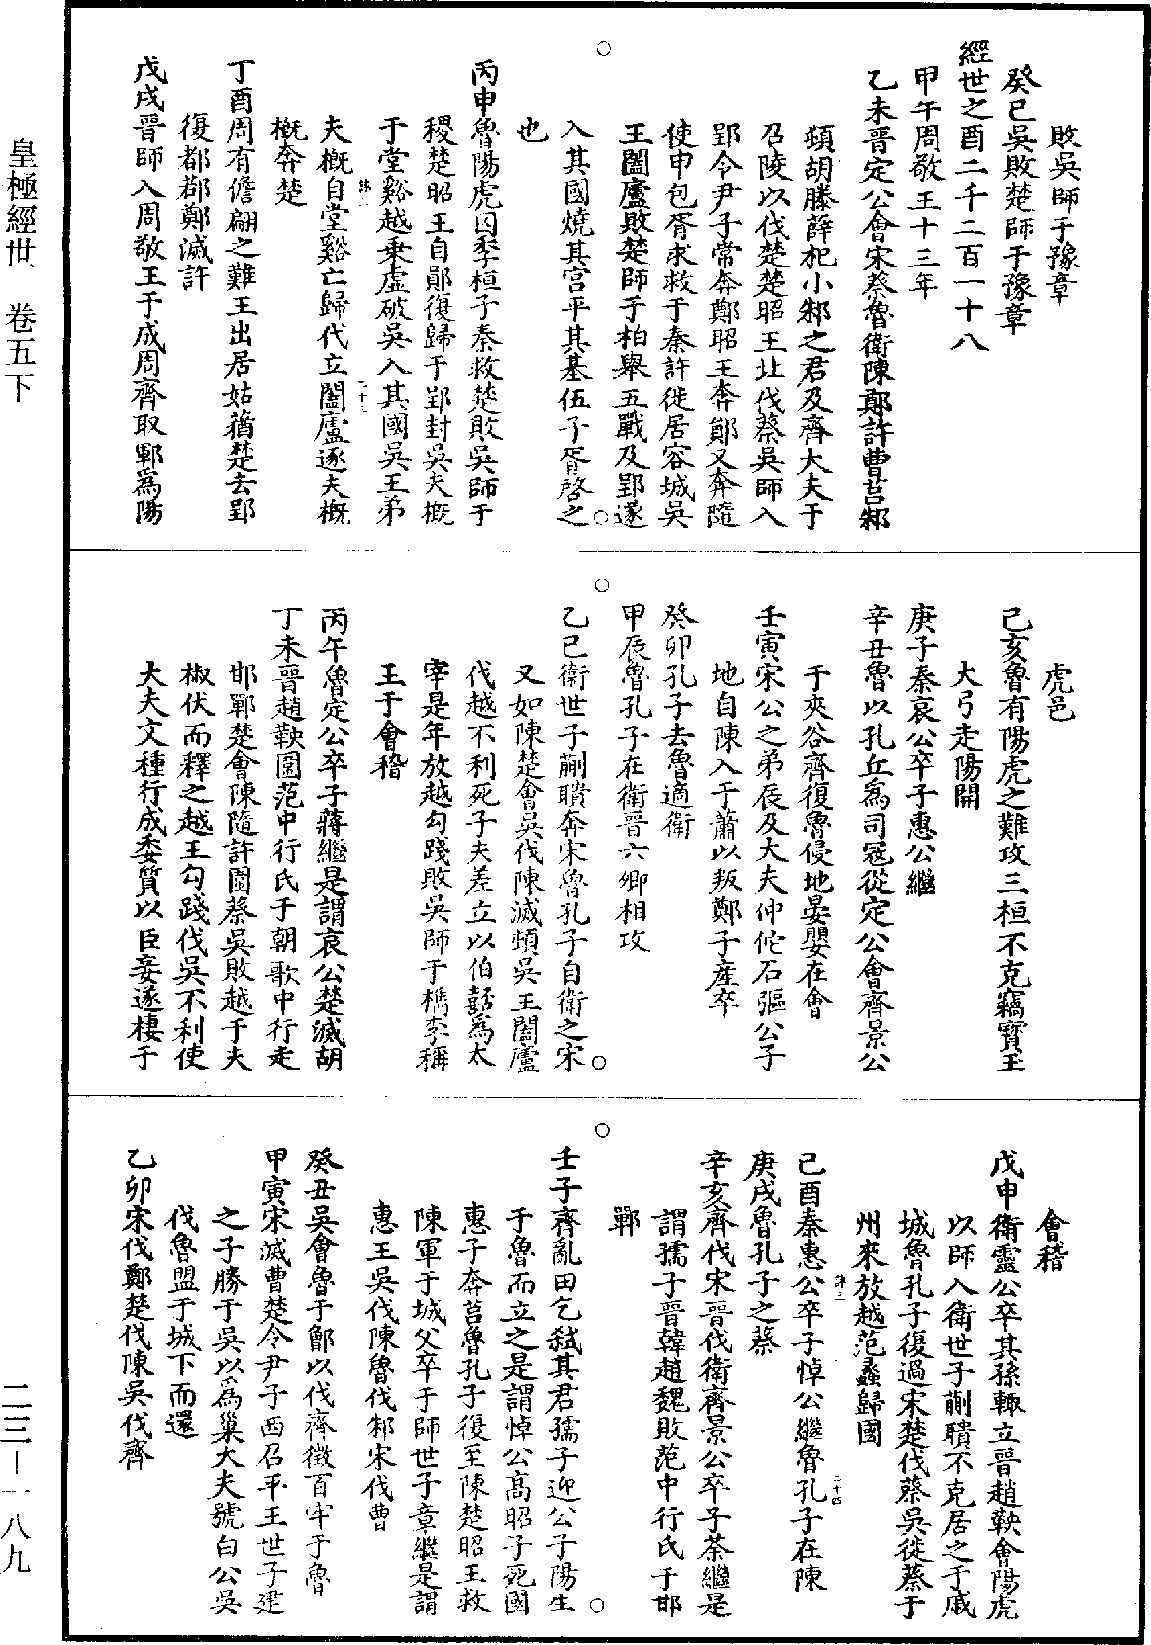 敗吳師于豫章
癸巳吳敗楚師于豫章
經世之酉二千二百一十八
甲午周敬王十三年
乙未晉定公會宋蔡魯衛陳鄭許曹莒邾
頓胡滕薛杞小邾之君及齊大夫于
召陵以伐楚楚昭王北伐蔡吳師入
郢令尹子常奔鄭昭王奔鄖又奔隨
使申包胥求救于秦許徙居容城吳
王闔廬敗楚師于柏舉五戰及郢遂
入其國燒其宮平其墓伍子胥啓之
也
丙申魯陽虎囚季桓子秦救楚敗吳師于
稷楚昭王自鄖復歸于郢封吳夫概
于堂谿越乘虛破吳入其國吳王弟
夫概自堂谿亡歸代立闔廬逐夫概
概奔楚
丁酉周有儋翩之難王出居姑蕕楚去郢
復都鄀鄭滅許
戊戌晉師入周敬王于成周齊取鄆為陽
虎邑
己亥魯有陽虎之難攻三桓不克竊寶玉
大弓走陽關
庚子秦哀公卒子惠公繼
辛丑魯以孔丘為司冦從定公會齊景公
于夾谷齊復魯侵地晏嬰在會
壬寅宋公之弟辰及大夫仲佗石彄公子
地自陳入于蕭以叛鄭子產卒
癸卯孔子去魯適衛
甲辰魯孔子在衛晉六卿相攻
乙巳衛世子蒯聵奔宋魯孔子自衛之宋
又如陳楚會吳伐陳滅頓吳王闔廬
伐越不利死子夫差立以伯嚭為太
宰是年放越勾踐敗吳師于檇李稱
王于會稽
丙午魯定公卒子蔣繼是謂哀公楚滅胡
丁未晉趙鞅圍范中行氏于朝歌中行走
邯鄲楚會陳隨許圍蔡吳敗越于夫
椒伏而釋之越王勾踐伐吳不利使
大夫文種行成委質以臣妾遂棲于
會稽
戊申衛靈公卒其孫輒立晉趙鞅會陽虎
以師入衛世子蒯聵不克居之于戚
城魯孔子復過宋楚伐蔡吳徙蔡于
州來放越范蠡歸國
己酉秦惠公卒子悼公繼魯孔子在陳
庚戌魯孔子之蔡
辛亥齊伐宋晉伐衛齊景公卒子荼繼是
謂孺子晉韓趙魏敗范中行氏于邯
鄲
壬子齊亂田乞弒其君孺子迎公子陽生
于魯而立之是謂悼公高昭子死國
惠子奔莒魯孔子復至陳楚昭王救
陳軍于城父卒于師世子章繼是謂
惠王吳伐陳魯伐邾宋伐曹
癸丑吳會魯于鄫以伐齊徵百牢于魯
甲寅宋滅曹楚令尹子西召平王世子建
之子勝于吳以為巢大夫號白公吳
伐魯盟于城下而還
乙卯宋伐鄭楚伐陳吳伐齊
皇極經世 卷五下
二三－一八九